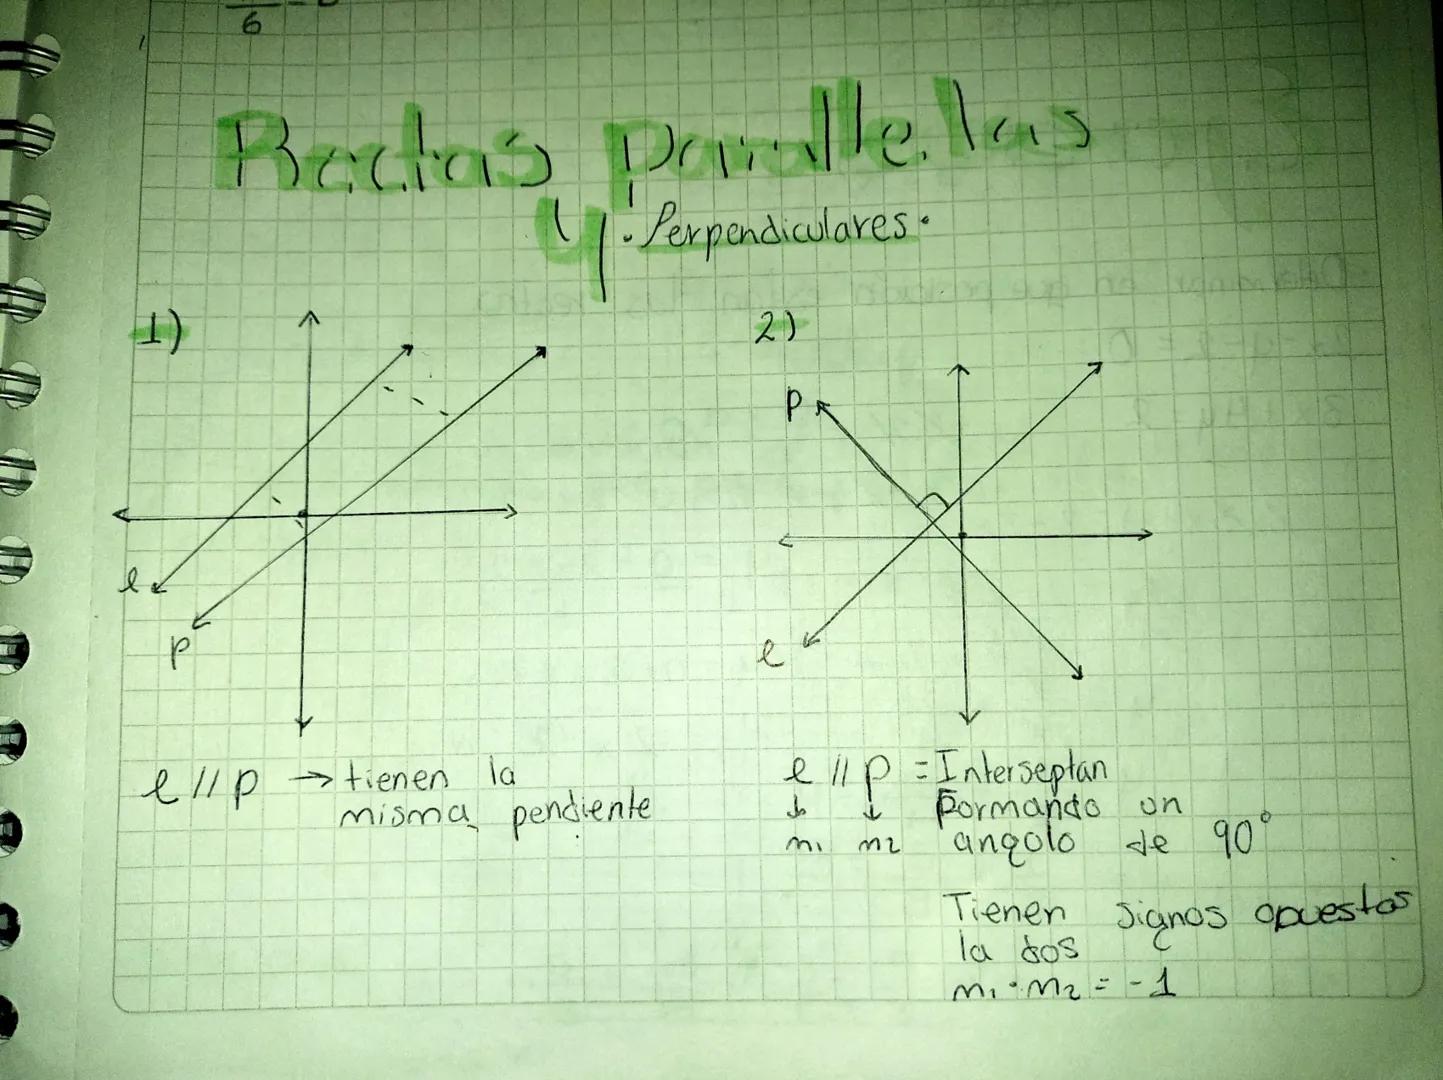 6
Rectas parallelas
y . Perpendiculares .
1)
2)
p
l
p
l
l // p → tienen la
misma pendiente
l // p = Interseptan
↓ ↓ Formando un
m1 m2 angolo de 90°
Tienen signos opuestos
la dos
m1 · m2 = -1